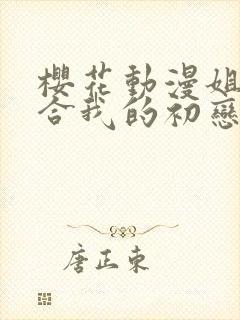 櫻花動漫姐
合我的初戀
唐正東